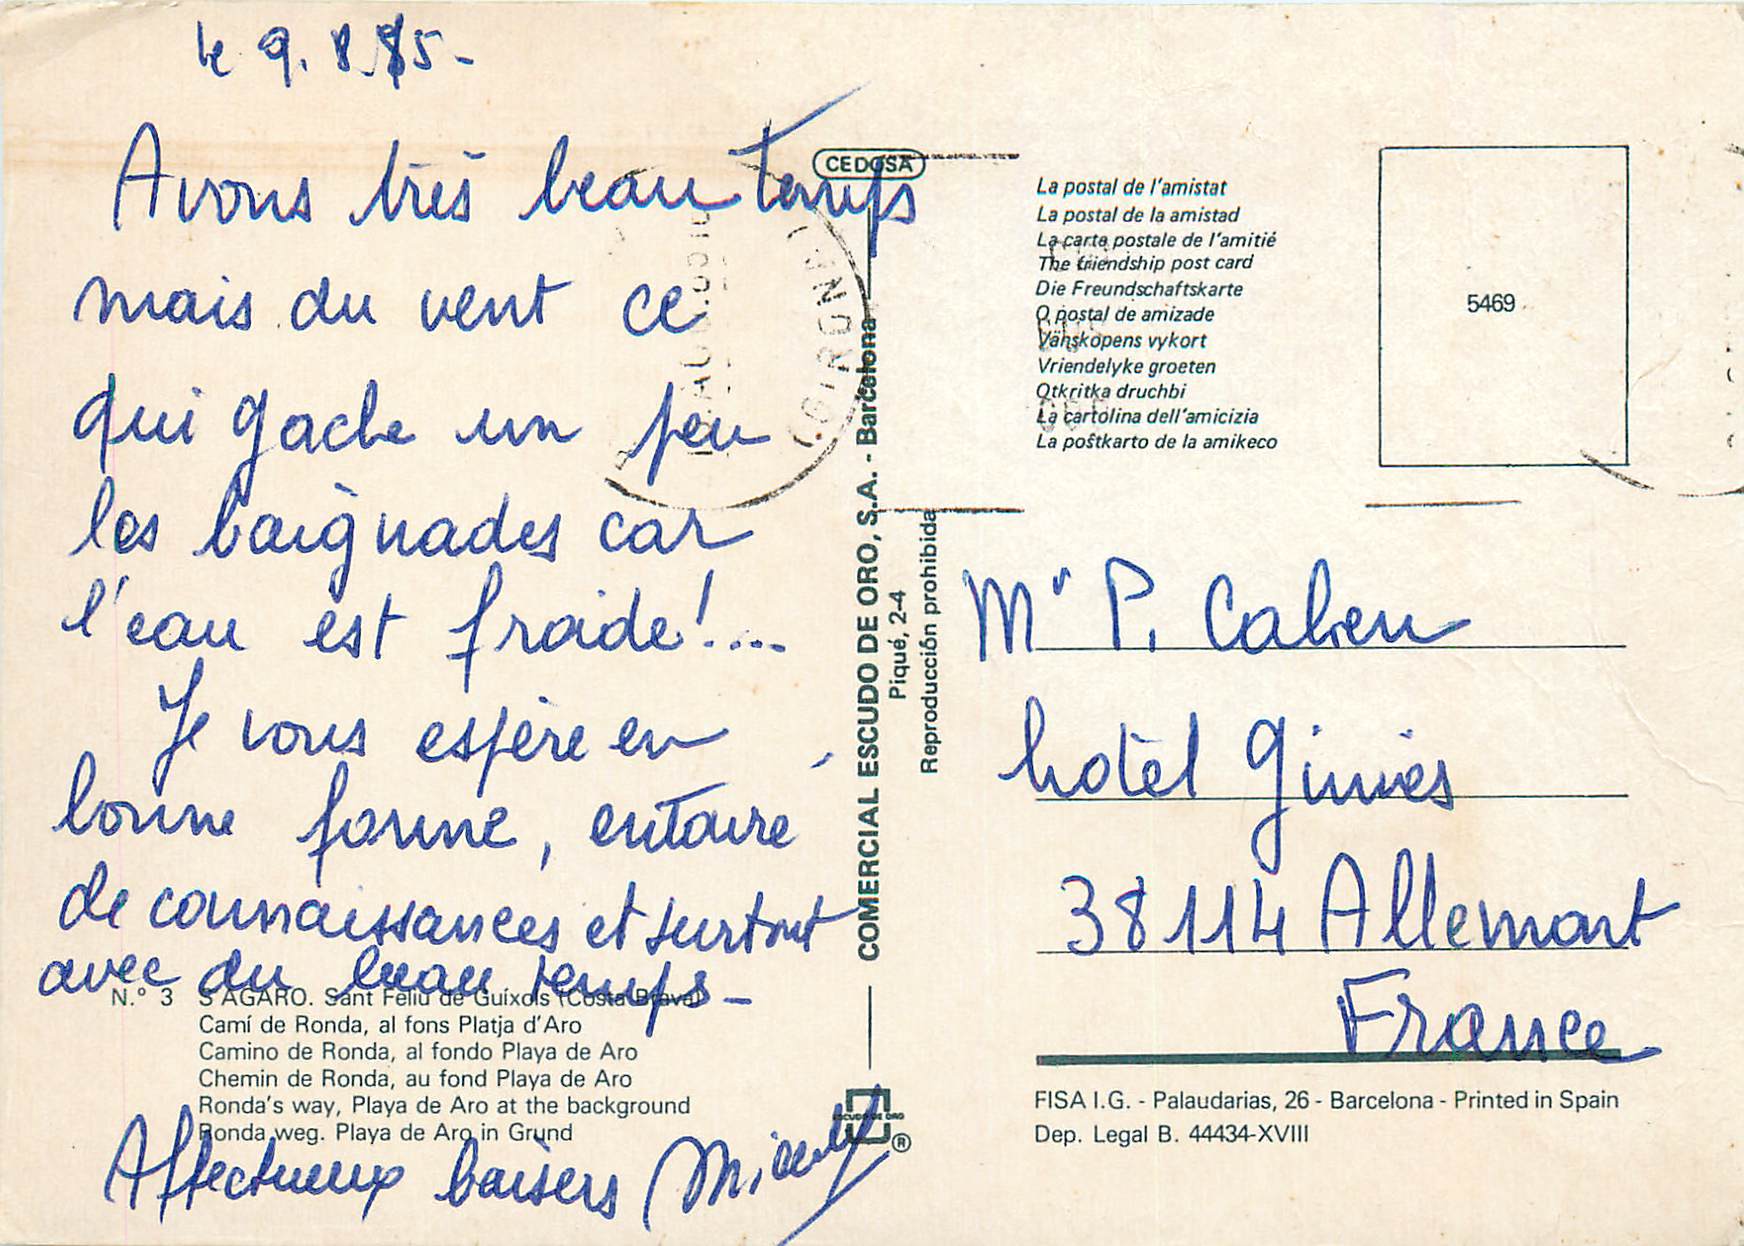 le 9.8.85-
Avons très beau temps
mais du vent ce
qui gache un peu
les baignades car
l'eau est froide!....
Je vous espère en
bonne forme, entouré
de connaissances et surtout
avec du beau temps-
Affectueux baisers
N.° 3 S'AGARO. Sant Feliu de Guíxols (Costa Brava)
Camí de Ronda, al fons Platja d'Aro
Camino de Ronda, al fondo Playa de Aro
Chemin de Ronda, au fond Playa de Aro
Ronda's way, Playa de Aro at the background
Ronda weg. Playa de Aro in Grund
CEDOSA
COMERCIAL ESCUDO DE ORO, S.A. - Barcelona
Piqué, 2-4
Reproducción prohibida
ESCUDO DE ORO
®
La postal de l'amistat
La postal de la amistad
La carta postale de l'amitié
The friendship post card
Die Freundschaftskarte
O postal de amizade
Vähskopens vykort
Vriendelyke groeten
Otkritka druchbi
La cartolina dell'amicizia
La poŝtkarto de la amikeco
5469
Mr P. Cahen
hotel Giniès
38114 Allemont
France
FISA I.G. - Palaudarias, 26 - Barcelona - Printed in Spain
Dep. Legal B. 44434-XVIII